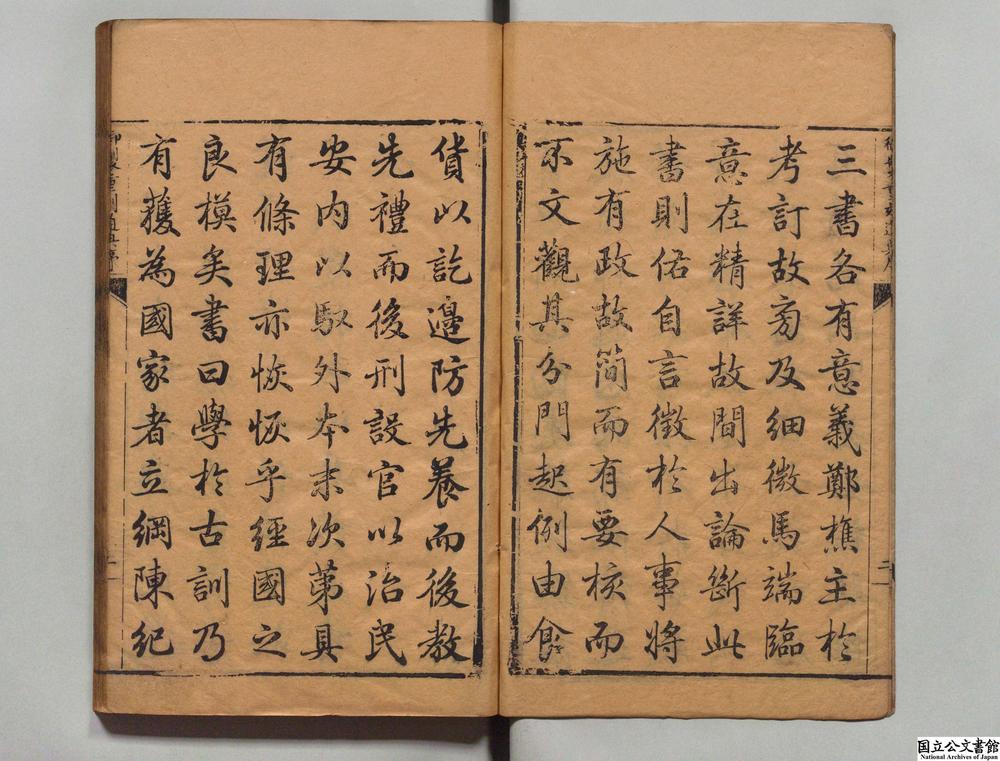 三書各有意義鄭樵主於
考訂故旁及細微馬端臨
意在精詳故間出論斷此
書則佑自言徵於人事將
施有政故簡而有要核而
不文觀其分門起例由食
貨以訖邊防先養而後教
先禮而後刑設官以治民
安内以馭外本末次第具
有條理亦恢恢乎經國之
良模矣書曰學於古訓乃
有獲為國家者立綱陳紀
国立公文書館
National Archives of Japan